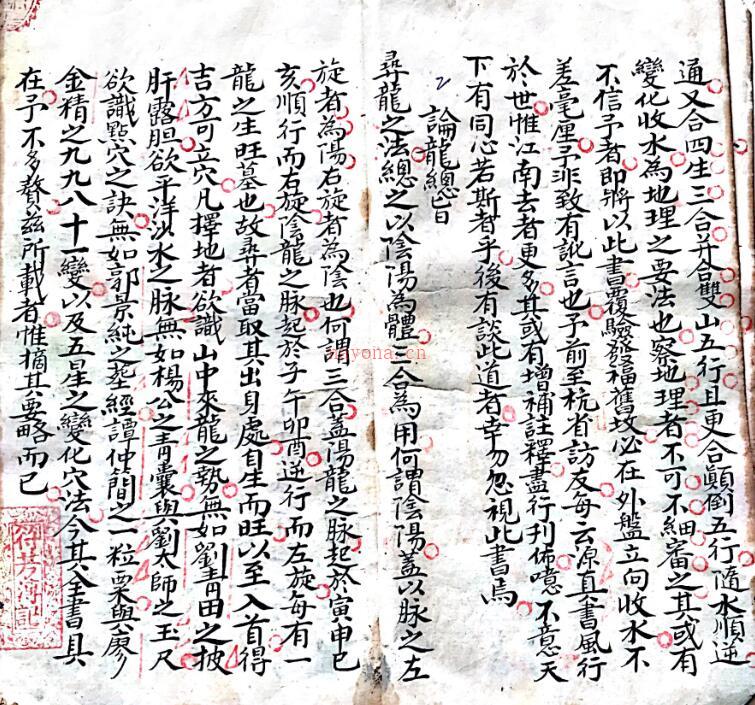 通又合四生三合并合雙山五行且更合顛倒五行隨水順逆
變化收水為地理之要法也察地理者不可不細審之其或有
不信予者即將以此書覆驗發福舊墳必在外盤立向收水不
差毫厘予非致有訛言也予前至杭省訪友每云源真書風行
於世惟江南去者更多其或有增補註釋盡行刊佈噫不意天
下有同心若斯者乎後有談此道者幸勿忽視此書焉
論龍總旨
尋龍之法總之以陰陽為體三合為用何謂陰陽蓋以脉之左
旋者為陽右旋者為陰也何謂三合蓋陽龍之脉起於寅申巳
亥順行而右旋陰龍之脉起於子午卯酉逆行而左旋每有一
龍之生旺墓也故尋者當取其出身處自生而旺以至入首得
吉方可立穴凡擇地者欲識山中來龍之勢無如劉青田之披
肝露胆欲平洋沙水之脉無如楊公之青囊與劉太師之玉尺
欲識點穴之訣無如郭景純之葬經譚仲簡之一粒粟與廖
金精之九九八十一變以及五星之變化穴法今其全書具
在予不多贅茲所載者惟摘其要略而已
nayona.cn